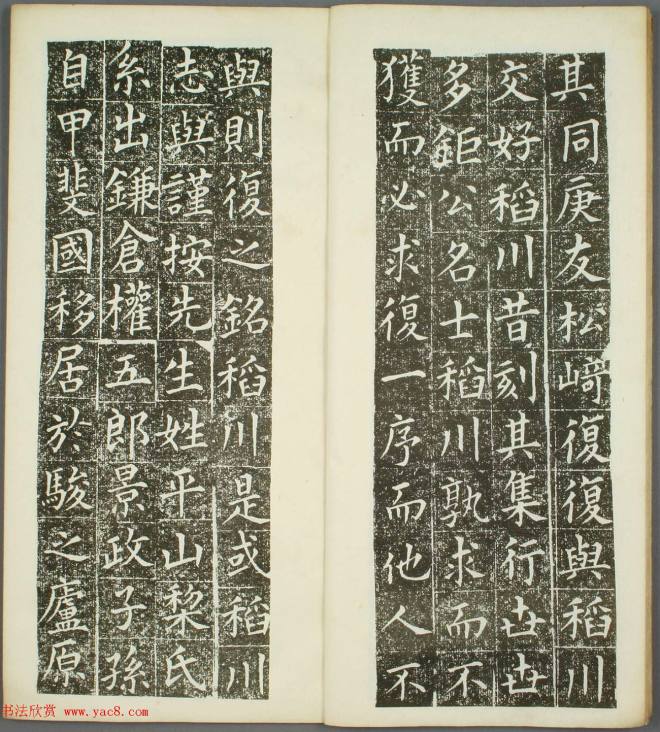 其同庚友松﨑復復與稻川
交好稻川昔刻其集行世世
多鉅公名士稻川孰求而不
獲而必求復一序而他人不
與則復之銘稻川是或稻川
志與謹按先生姓平山棃氏
系出鎌倉權五郎景政子孫
自甲斐國移居於駿之廬原
书法欣赏 www.yac8.com